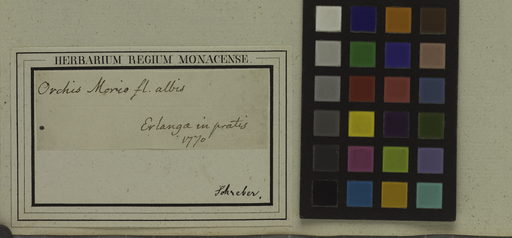 HERBARIUM REGIUM MONACENSE.
Orchis Morio fl. albis
Erlangæ in pratis
1770
Schreber.